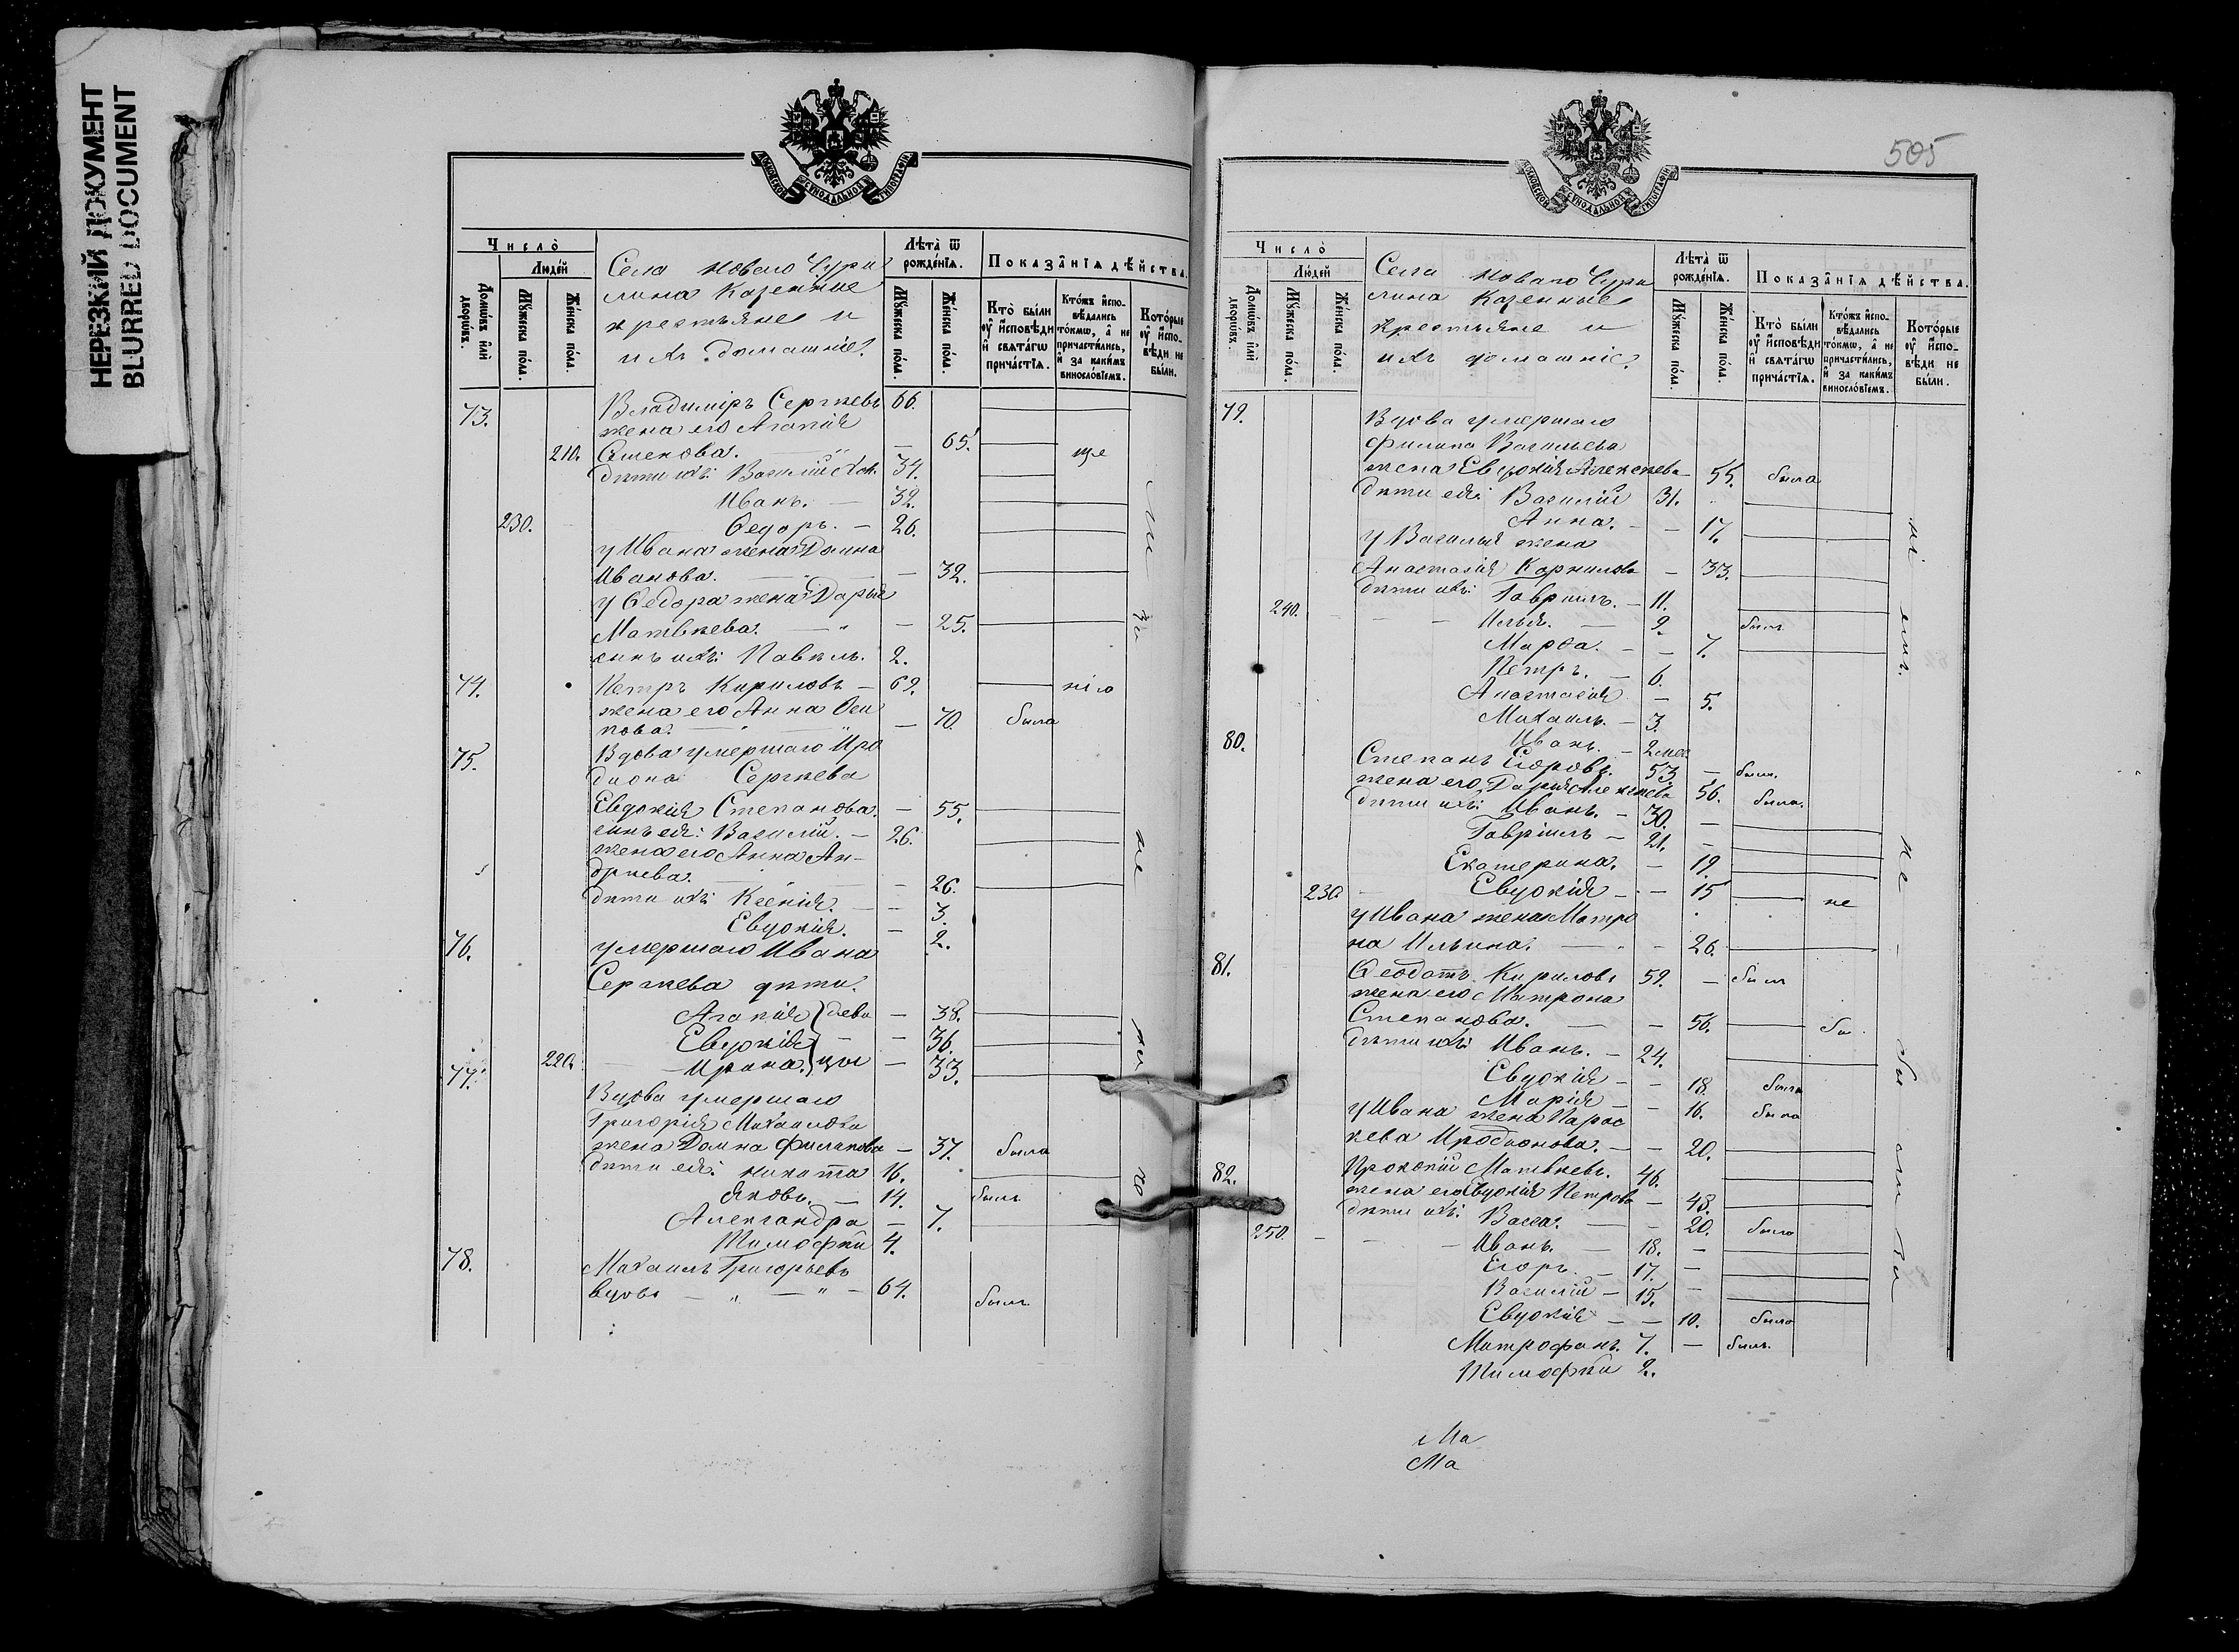 НЕРЕЗКИЙ ДОКУМЕНТ
BLURRED DOCUMENT
МОСКОВСКОЙ СѴНОДАЛЬНОЙ ТИПОГРАФІИ
Число̀
Людей
Домѡвъ или дворѡвъ.
Мꙋжеска пола.
Женска пола.
Села Новаго Чури
лина Казенные
крестьяне и
ихъ домашніе.
Лѣта ѿ рожденїѧ.
Мꙋжеска пола.
Женска пола.
Показанїѧ дѣйства.
Кто были оу исповѣди и свѧтагѡ причастїѧ.
Ктожъ исповѣдались токмѡ, а не причастились, и за какимъ винословїемъ.
Которые оу исповѣди не были.
73. Владиміръ Сергѣевъ 66.
жена его Агапія
210. Семенова. — 65.
дѣти ихъ: Василій 34.
Иванъ. — 32.
230. Ѳедоръ. — 26.
у Ивана жена Домна
Иванова. — 32.
у Ѳедора жена Дарья
Матвѣева. — 25.
сынъ ихъ: Павелъ. 2.
74. Петръ Кириловъ — 69.
жена его Анна Оси
пова. — 70. была
75. Вдова умершаго Иро
діона Сергѣева
Евдокія Степанова. — 55.
сынъ ея: Василій. — 26.
жена его Анна Ан-
дрѣева. — 26.
дѣти ихъ: Ксенія. — 3.
Евдокія. — 2.
76. умершаго Ивана
Сергѣева дѣти.
Агапія } деви — 38.
Евдокія — 36.
220. Ирина. } цы — 33.
77. Вдова умершаго
Григорія Михаилова
жена Домна Филипова — 37. была
дѣти ея: Никита 16.
Яковъ. — 14. былъ
Александра — 7.
Тимофѣй 4.
78. Михаилъ Григорьевъ
вдовъ — 64. былъ
505
МОСКОВСКОЙ СѴНОДАЛЬНОЙ ТИПОГРАФІИ
Число̀
Людей
Домѡвъ или дворѡвъ.
Мꙋжеска пола.
Женска пола.
Села Новаго Чури
лина Казенные
Крестьяне и
ихъ домашніе.
Лѣта ѿ рожденїѧ.
Мꙋжеска пола.
Женска пола.
Показанїѧ дѣйства.
Кто были оу исповѣди и свѧтагѡ причастїѧ.
Ктожъ исповѣдались токмѡ, а не причастились, и за какимъ винословїемъ.
Которые оу исповѣди не были.
79. Вдова умершаго
Филипа Васильева
жена Евдокія Алексѣева — 55. была
дѣти ея: Василій 31.
Анна. — 17.
у Василья жена
Анастасія Корнилова — 33.
дѣти ихъ: Гавріилъ. — 11.
240. Илья. — 9. былъ
Марѳа. — 7.
Петръ. — 6.
Анастасія — 5.
Михаилъ. — 3.
Иванъ. — 2 мес.
80. Степанъ Егоровъ. 53. — былъ.
жена его Дарія Алексѣева 56. была.
дѣти ихъ: Иванъ. — 30. —
Гавріилъ — 21. —
Екатерина. — 19.
230. Евдокія — 15
у Ивана жена Матро
на Ильина. — 26.
81. Ѳеодотъ Кириловъ 59. — былъ
жена его Матрона
Степанова. — 56.
дѣти ихъ: Иванъ. — 24.
Евдокія — 18. была
Марія — 16. была
у Ивана жена Парас
кева Иродіонова. — 20.
82. Прокопій Матвѣевъ. 46.
жена его Евдокія Петрова — 48.
дѣти ихъ: Васса. — 20. была
250. Иванъ. — 18. —
Егоръ. — 17. —
Василій — 15. —
Евдокія — 10. была
Митрофанъ. 7. — былъ.
Тимофѣй 2.
Ма
Ма